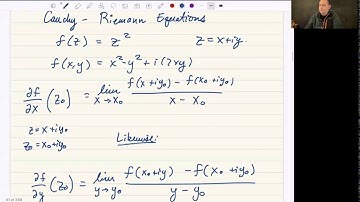 Cauchy - Riemann Equations
f(z) = z² z = x+iy
f(x,y) = x²-y² + i(2xy)
∂f/∂x (z₀) = lim x→x₀ f(x+iy₀) - f(x₀+iy₀) / x - x₀
z = x+iy₀
z₀ = x₀+iy₀
Likewise:
∂f/∂y (z₀) = lim y→y₀ f(x₀+iy) - f(x₀+iy₀) / y - y₀